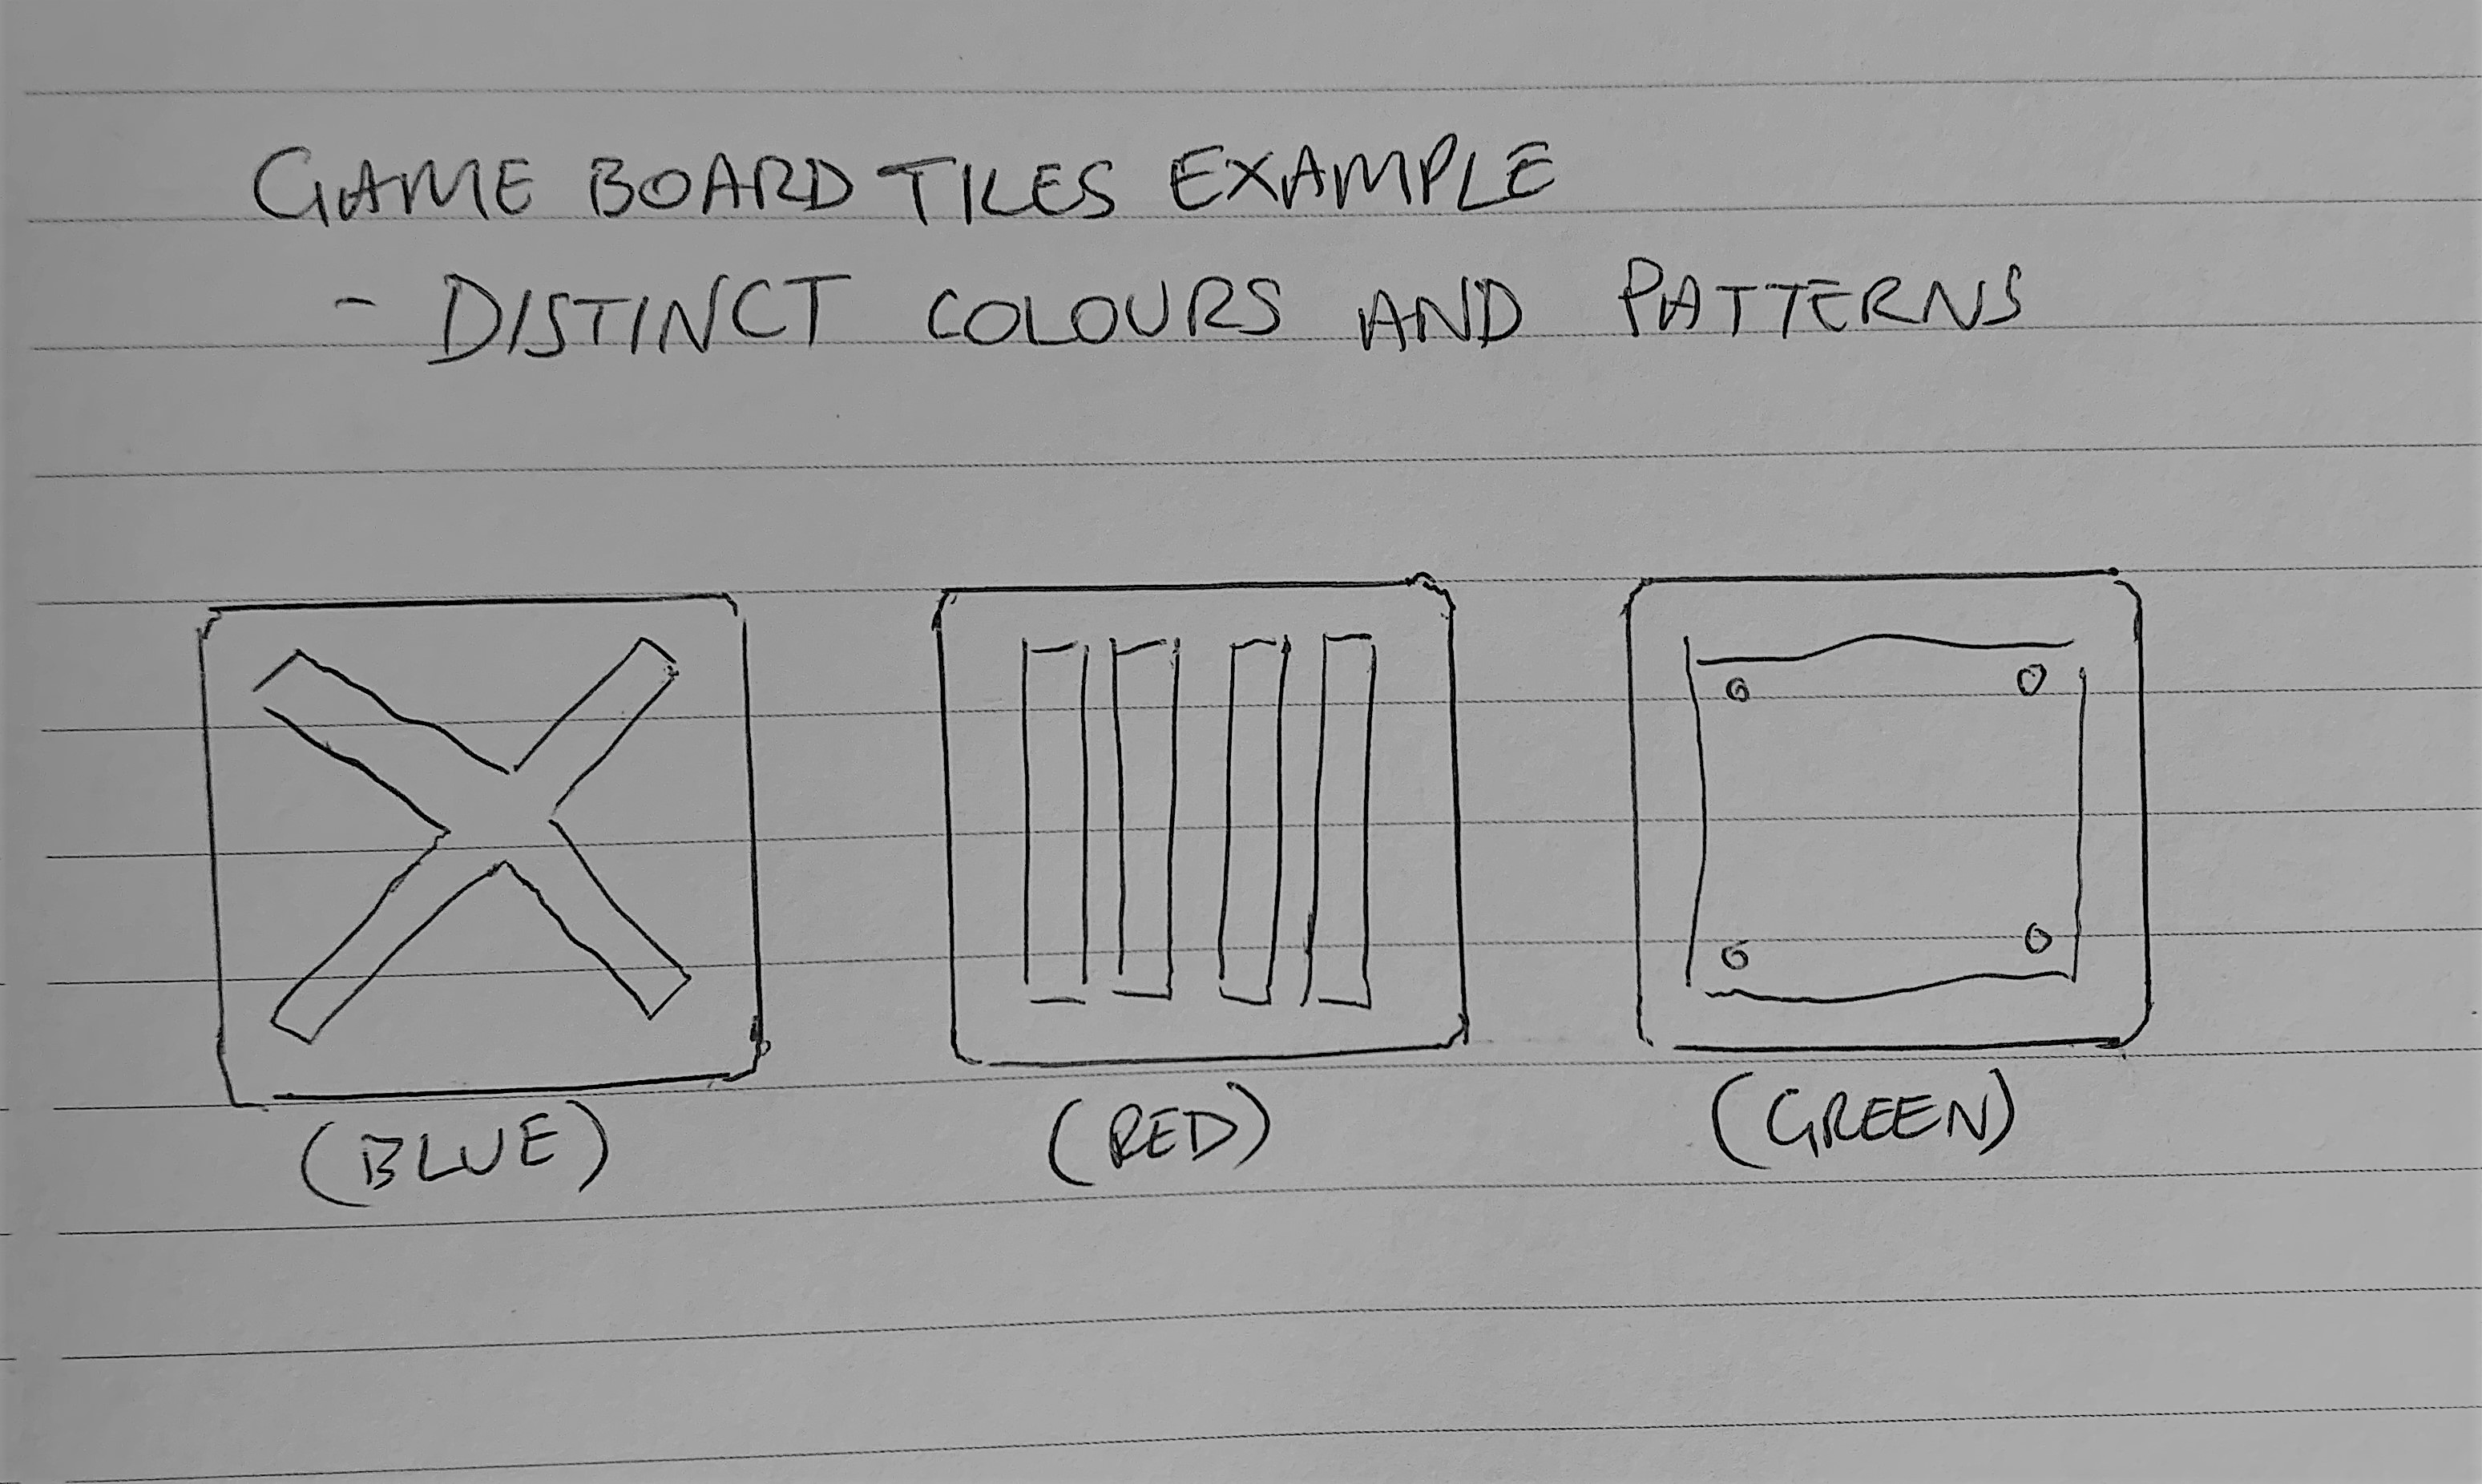 GAME BOARD TILES EXAMPLE
- DISTINCT COLOURS AND PATTERNS
(BLUE) (RED) (GREEN)